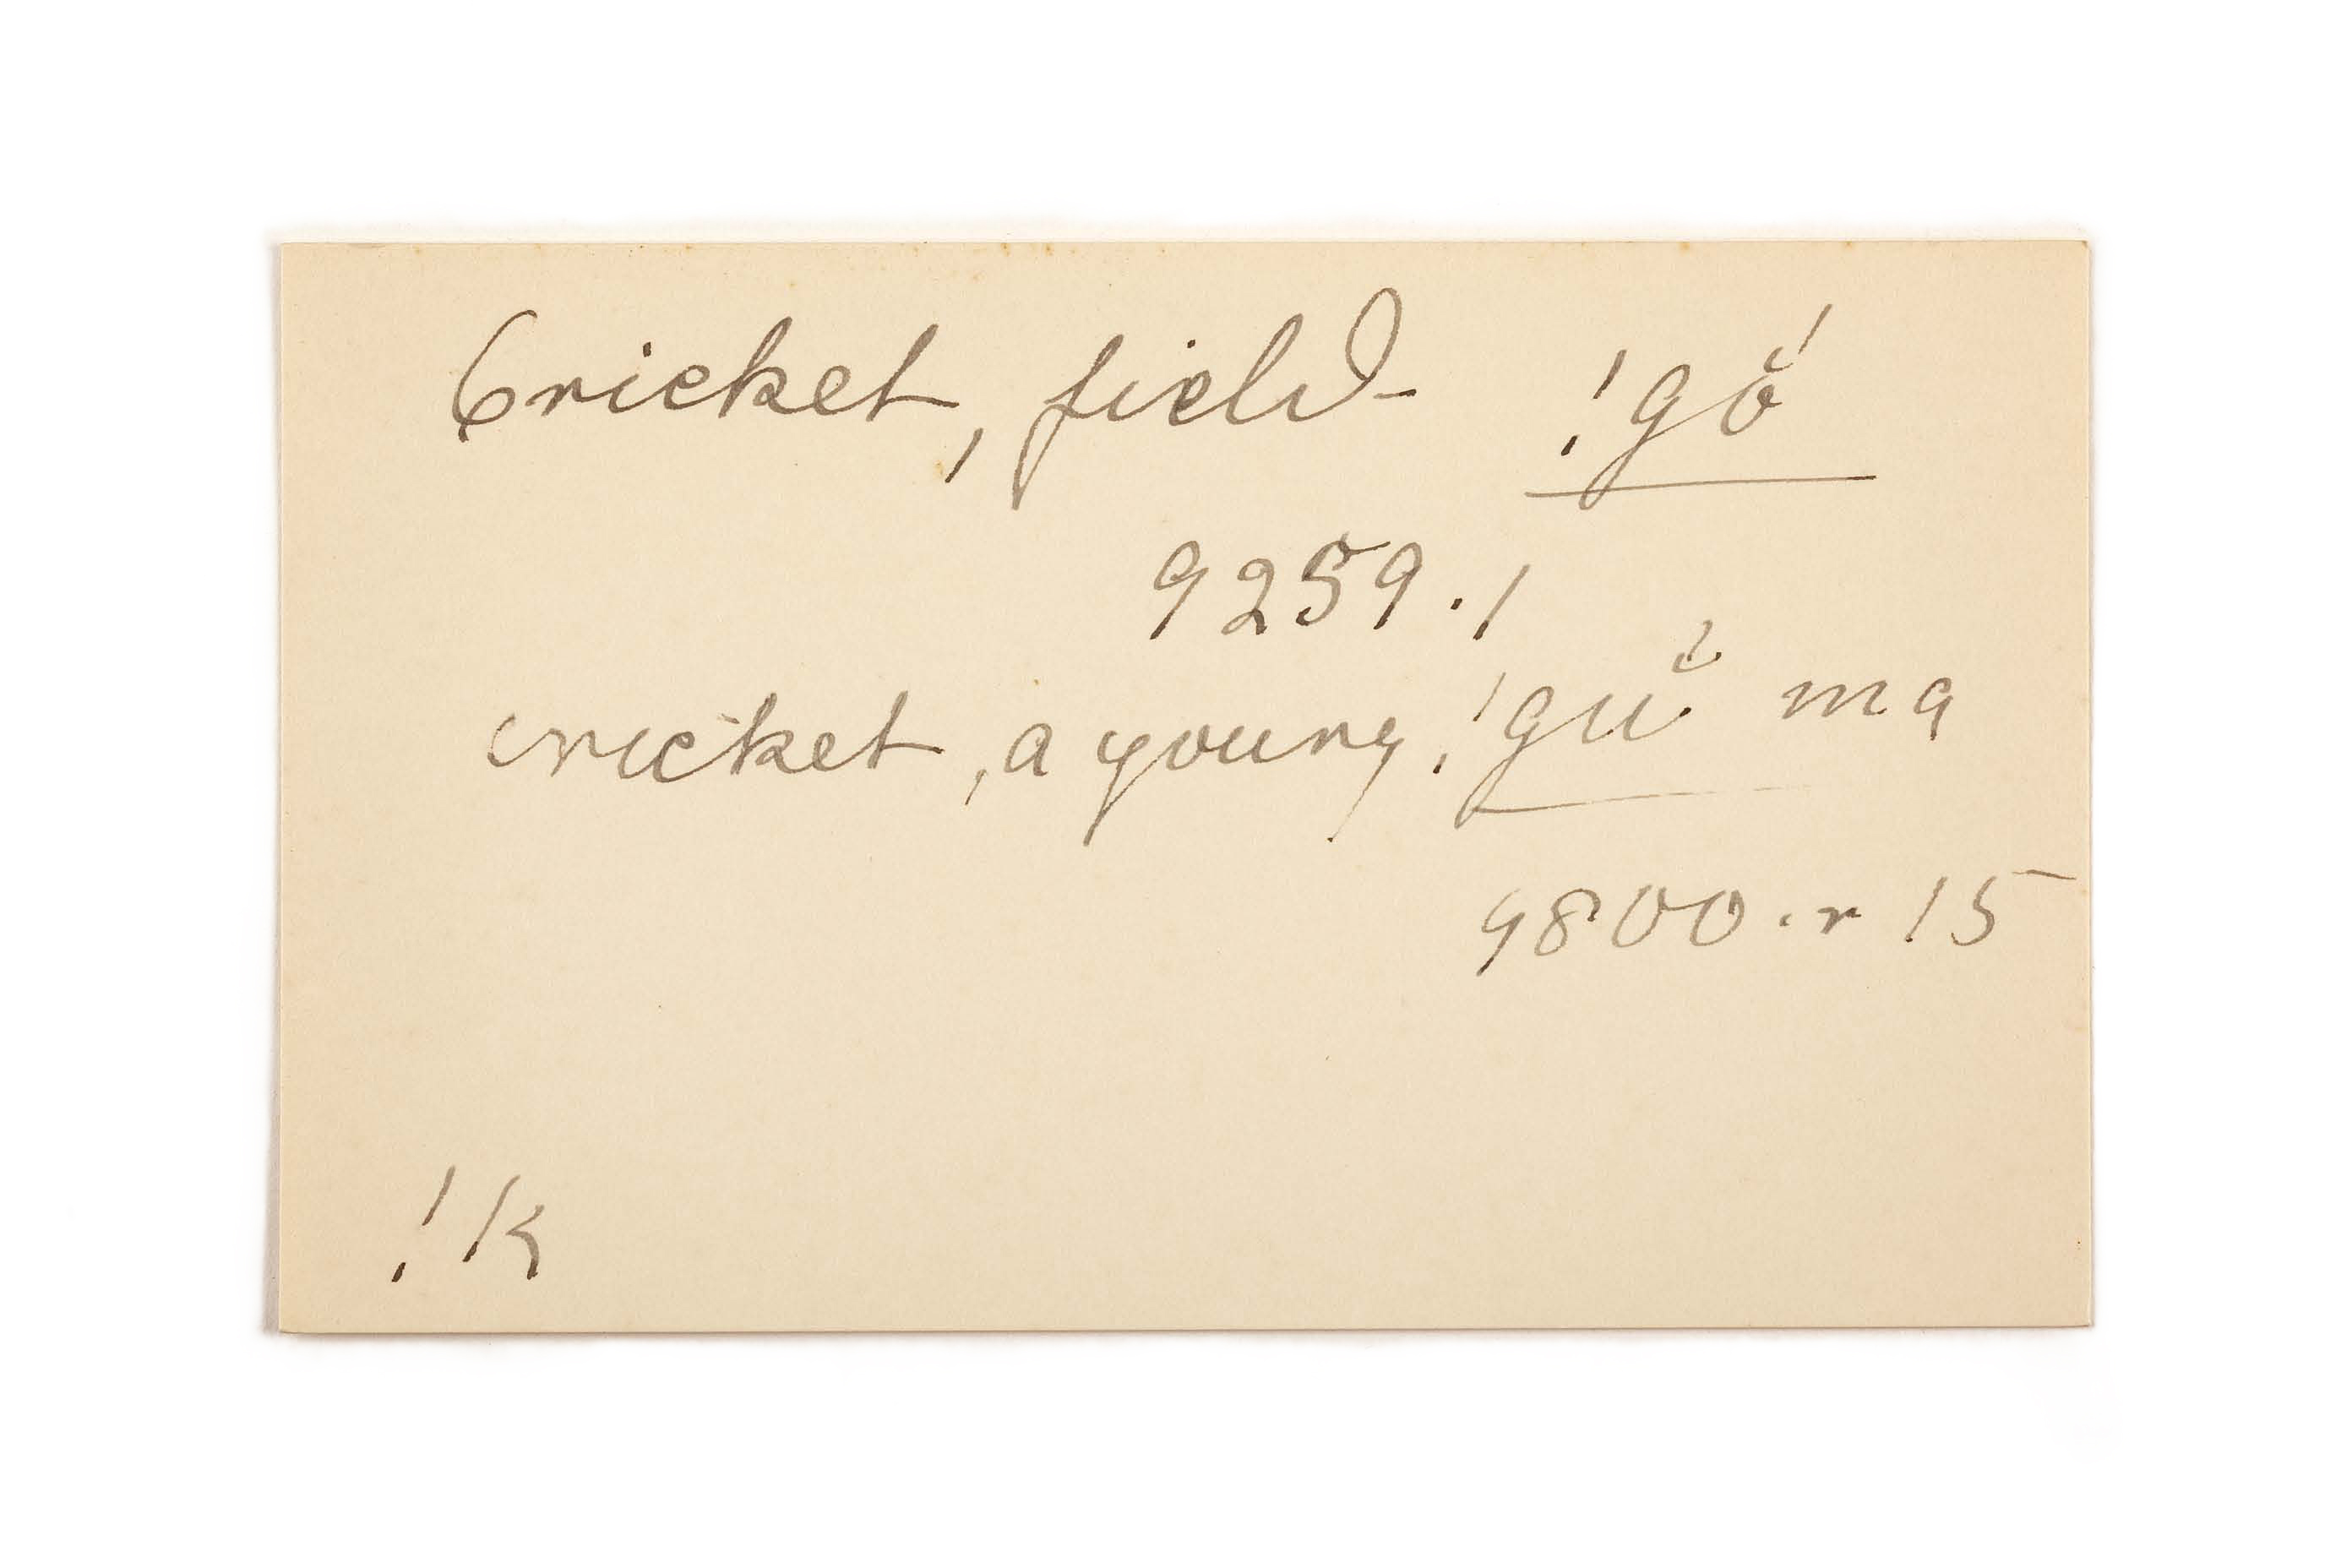 Cricket, field- !gŏ́
9259.1
cricket, a young !gŭ́ ma
9800.r 15
!k